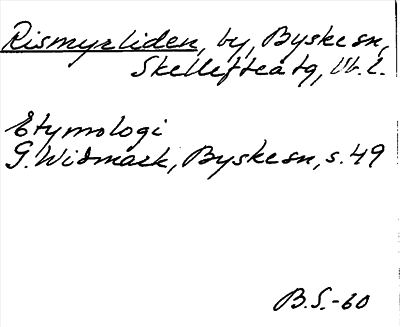 Rismyrliden, by, Byske sn,
Skellefteå tg, Vb. l.
Etymologi
G. Widmark, Byske sn, s. 49
B.S.-60